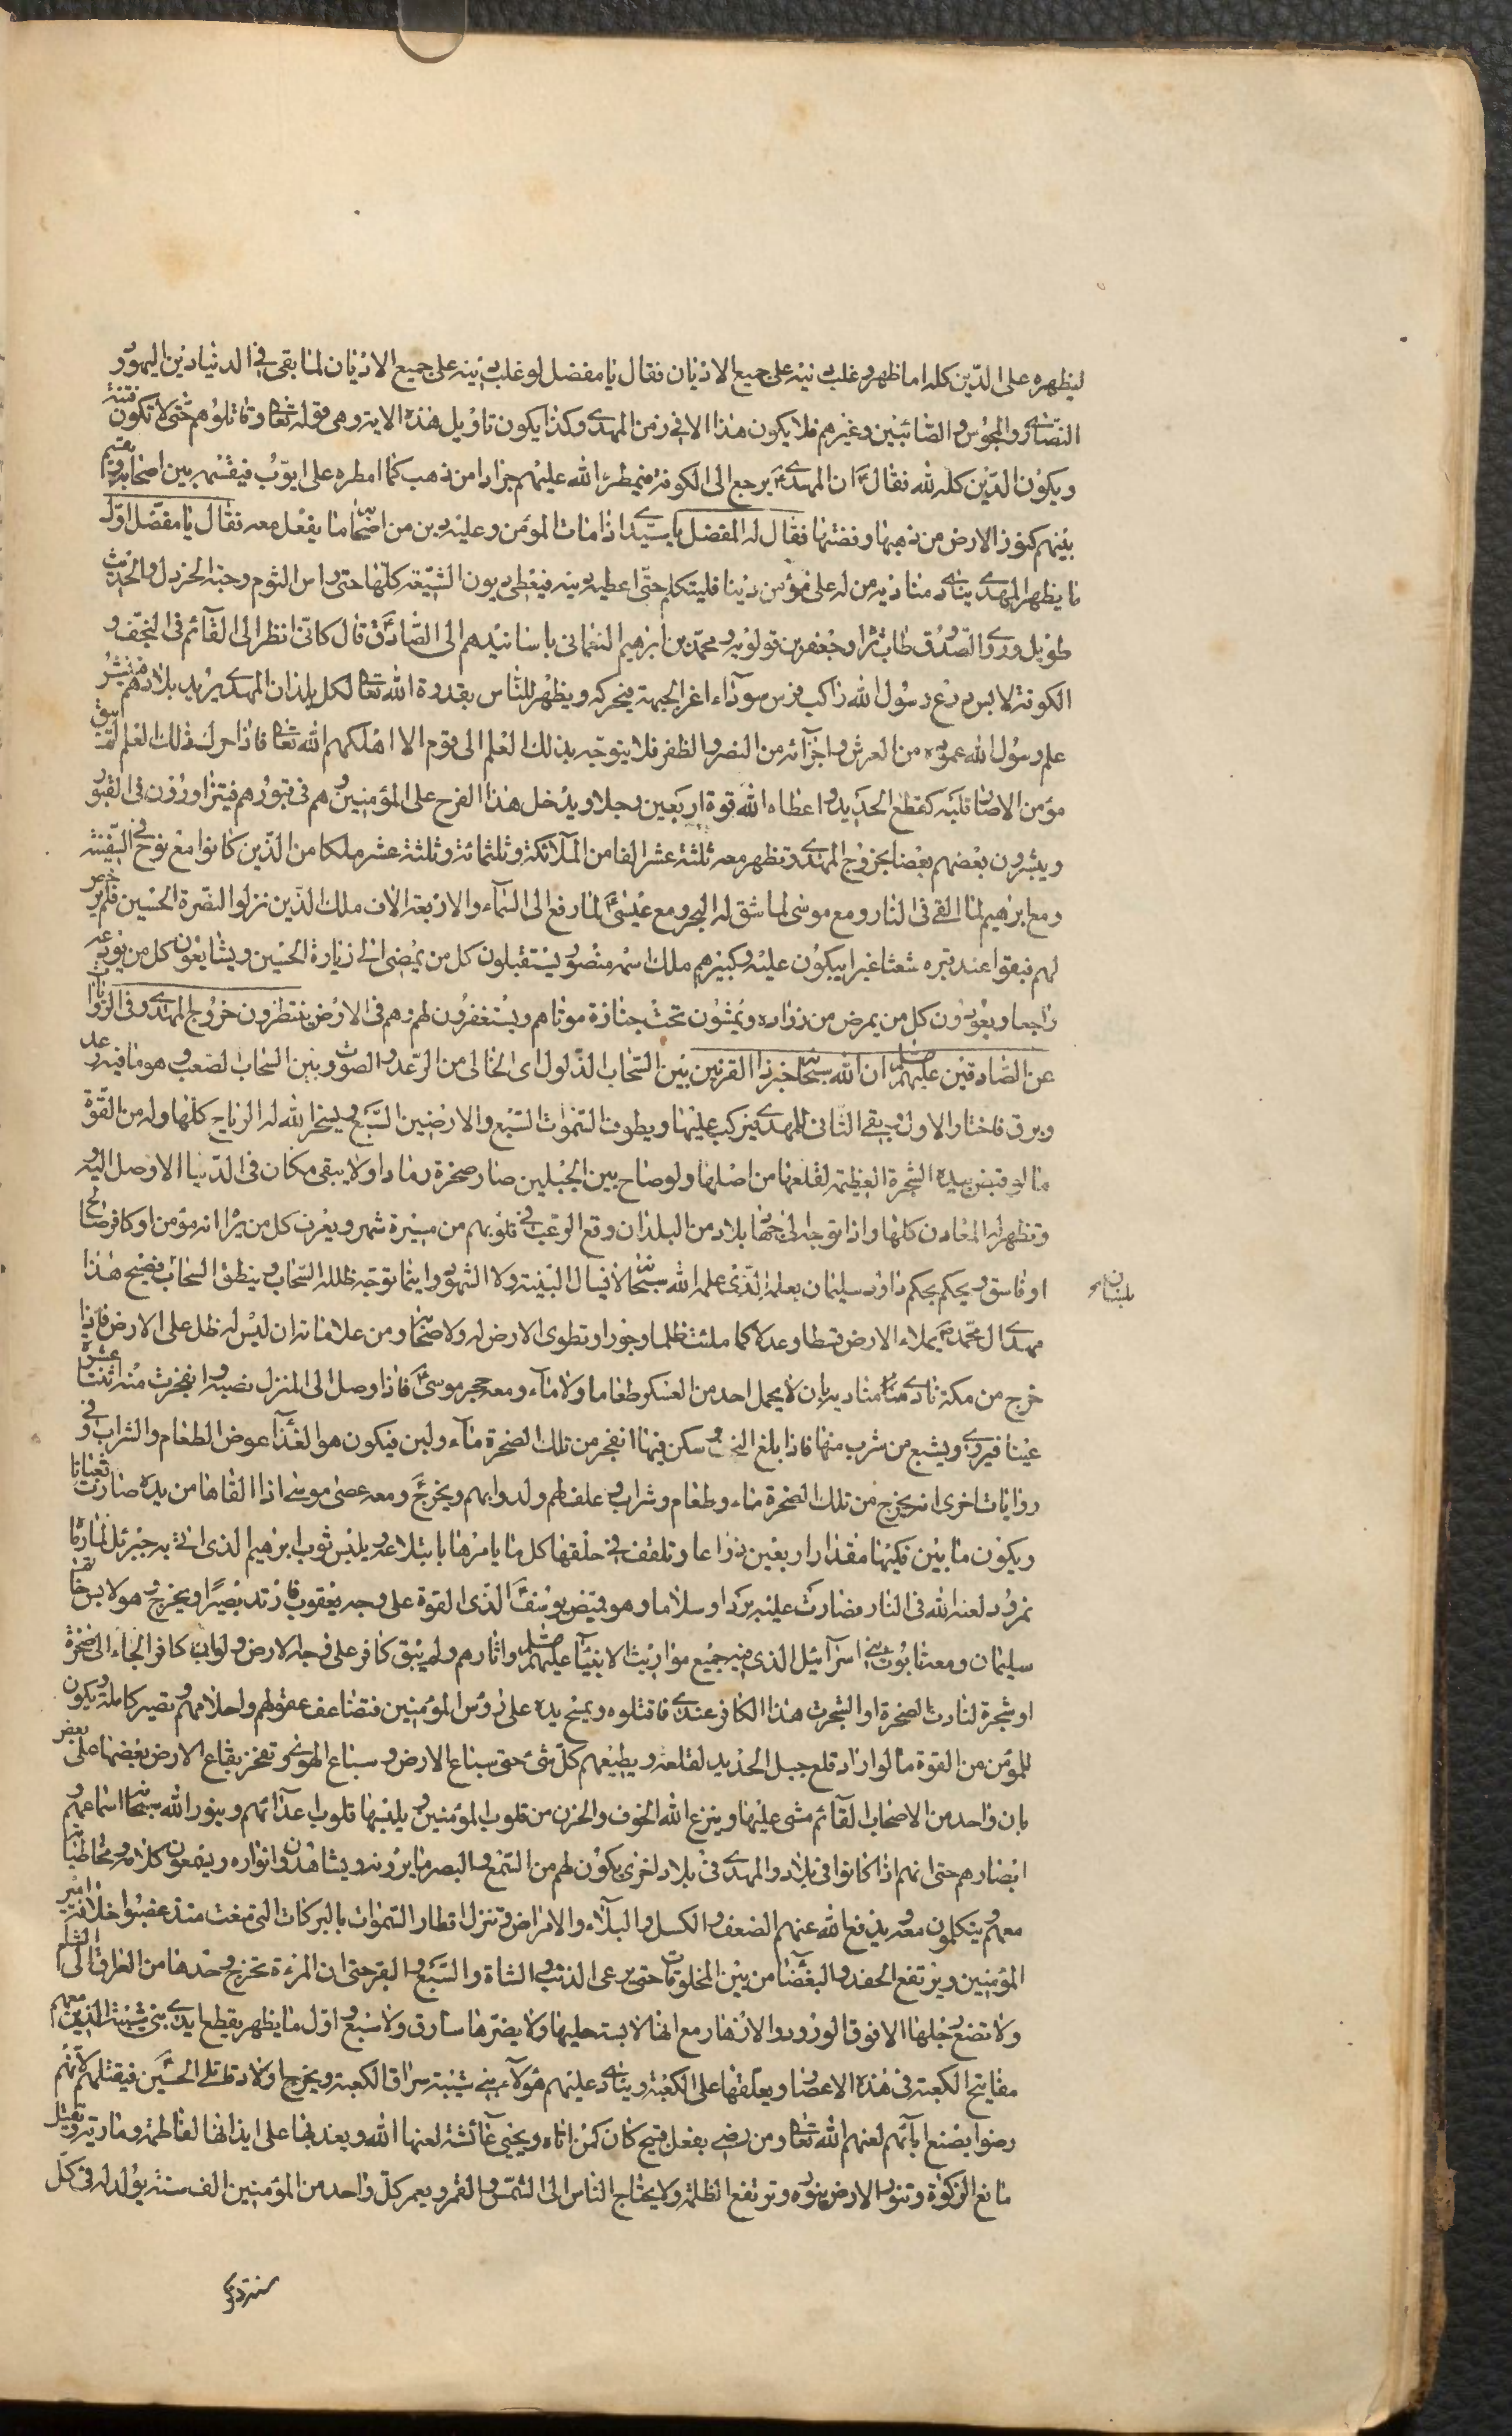 ليظهره على الدّين كله اما ظهر وغلب دينه على جميع الاديان فقال يا مفضل لو غلب دينه على جميع الاديان لما بقى فى الدنيا دين اليهود و
النصارى والمجوس والصّائبين وغيرهم فلا يكون هذا الا فى زمن المهدى وكذا يكون تاويل هذه الاية وهى قوله تعا وقاتلوهم حتى لا تكون فتنة
ويكون الدّين كله لله فقال ان المهدى يرجع الى الكوفة فيمطر الله عليهم جرادا من ذهب كما امطره على ايوب فيقسمه بين اصحابه ويقسم
بينهم كنوز الارض من ذهبها وفضتها فقال له المفضل يا سيدى اذا مات المؤمن وعليه دين من اصحابنا ما يفعل معه فقال يا مفضل اول
ما يظهر المهدى ينادى مناديه من له على مؤمن دينا فليتكلم حتى اعطيه دينه فيعطى ديون الشيعة كلها حتى راس الثوم وحبة الخردل والحديث
طويل وروى الصدوق طاب ثراه وجعفر بن قولويه ومحمد بن ابرهيم النعمانى باسانيدهم الى الصّادق قال كانى انظر الى القائم فى النجف و
الكوفة لابس درع رسول الله راكب فرس سوداء اغر الجبهة فيحركه ويظهر للناس بقدرة الله تعا لكل بلد ان المهدى يريد بلادهم فينشر
علم رسول الله عموده من العرش واجزائه من النصر والظفر فلا يتوجّه بذلك العلم الى قوم الا اهلكهم الله تعا فاذا حرك ذلك العلم لم يبق
مؤمن الا صار قلبه كقطع الحديد واعطاه الله قوة اربعين رجلا ويدخل هذا الفرح على المؤمنين وهم فى قبورهم فيتزاورون فى القبور
ويبشرون بعضهم بعضا بخروج المهدى وتظهر معه ثلثة عشر الفا من الملائكة وثلثمائة وثلثة عشر ملكا من الذين كانوا مع نوح فى السّفينة
ومع ابرهيم لما القى فى النار ومع موسى لما شق له البحر ومع عيسى لما رفع الى السماء والاربعة الاف ملك الذين نزلوا لنصرة الحسين فلم يرخص
لهم فبقوا عند قبره شعثا غبرا يبكون عليه وكبيرهم ملك اسمه منصور يستقبلون كل من يمضى الى زيارة الحسين ويشايعون كل من يودعه
راجعا ويعودون كل من يمرض من زواره ويمشون تحت جنازة موتاهم ويستغفرون لهم وهم فى الارض ينتظرون خروج المهدى وفى الروايات
عن الصّادقين عليهم ان الله سبحانه خير ذا القرنين بين السّحاب الذلول اى الخالى من الرّعد والصوت وبين السحاب الصعب وهو ما فيه رعد
وبرق فاختار الاول وبقى الثانى للمهدى فيركب عليها ويطوف السّموات السّبع والارضين السّبع ويسخر الله له الرياح كلها وله من القوّة
ما لو قبض بيده الشجرة العظيمة لقلعها من اصلها ولو صاح بين الجبلين صار صخرة رمادا ولا يبقى مكان فى الدّنيا الا وصل اليه
وتظهر له المعادن كلها واذا توجه الى جهة بلاد من البلدان وقع الرعب فى قلوبهم من مسيرة شهر ويعرف كل من يراه انه مؤمن او كافر صالح
او فاسق ويحكم بحكم داود سليمان بعلمه الّذى علمه الله سبحانه لا يسال البينة ولا الشهود واينما توجّه ظلله السّحاب وينطق السّحاب فصيح هذا
بلسان
مهدى ال محمد يملاء الارض قسطا وعدلا كما ملئت ظلما وجورا وتطوى الارض له ولاصحابه ومن علاماته ان ليس له ظل على الارض فاذا
خرج من مكة نادى مناديه بان لا يحمل احد من العسكر طعاما ولا ماء ومعه حجر موسى فاذا وصل الى المنزل نصبه وانفجرت منه اثنتا عشرة
عينا فيروى ويشبع من شرب منها فاذا بلغ النجف وسكن فيها انفجر من تلك الصخرة ماء ولبن فيكون هو الغذاء عوض الطعام والشراب وفى
روايات اخرى انه يخرج من تلك الصخرة ماء وطعام وشراب وعلف لهم ولدوابهم ويخرج ومعه عصى موسى اذا القاها من يده صارت ثعبانا
ويكون ما بين فكيها مقدار اربعين ذراعا وتلقف فى حلقها كل ما يامرها بابتلاعه ويلبس ثوب ابرهيم الذى اتى به جبرئيل لما رماه
نمرود لعنه الله فى النار فصارت عليه بردا وسلاما وهو قميص يوسف الّذى القوه على وجه يعقوب فارتد بصيرا ويخرج وهو لابس خاتم
سليمان ومعه تابوت بنى اسرآئيل الذى فيه جميع مواريث الانبيآء عليهم واثارهم ولم يبق كافر على وجه الارض ولو اب كافر الجاء الى صخرة
او شجرة لنادت الصخرة او الشجرة هذا الكافر عندى فاقتلوه ويمسح يده على رؤس المؤمنين فتضاعف عقولهم واحلامهم وتصير كاملة ويكون
للمؤمن من القوة ما لو اراد قلع جبل الحديد لقلعه ويطيعهم كلّ شىء حتى سباع الارض وسباع الهوى وتفخر بقاع الارض بعضها على بعض
بان واحد من الاصحاب القآئم مشى عليها وينزع الله الخوف والحزن من قلوب المؤمنين ويلبسها قلوب اعدآئهم وينور الله سبحانه اسماعهم و
ابصارهم حتى انهم اذا كانوا فى بلاد والمهدى فى بلاد اخرى يكون لهم من السّمع والبصر ما يرونه ويشاهدون انواره ويسمعون كلامه ومخاطباته
معهم ويتكلمون معه ويدفع الله عنهم الضعف والكسل والبلاء والامراض وتنزل اقطار السّموات بالبركات التى منعت منذ غصبوا خلافة امير
المؤمنين ويرتفع الحقد والبغضا من بين المخلوقات حتى يرعى الذئب والشاة والسّبع والبقر حتى ان المرءة تخرج وحدها من العراق الى الشام
ولا تضع رجلها الا فوق الورود والازهار مع انها لابسة حليها ولا يضرها سارق ولا سبع واوّل ما يظهر يقطع ايدى بنى شيبة الذين معهم
مفاتيح الكعبة فى هذه الاعصار ويعلقها على الكعبة وينادى عليهم هؤلاء بنى شيبة سراق الكعبة ويخرج اولاد قاتلى الحسين فيقتلهم لانهم
رضوا بصنع ابآئهم لعنهم الله تعا ومن رضى بفعل قبيح كان كمن اتاه ويحيى عآئشة لعنها الله ويعذبها على ايذائها لفاطمة ومارية ويقتل
مانع الزكوة وتنور الارض بنوره وترتفع الظلمة ولا يحتاج الناس الى الشّمس والقمر ويعمر كلّ واحد من المؤمنين الف سنة يولد له فى كلّ